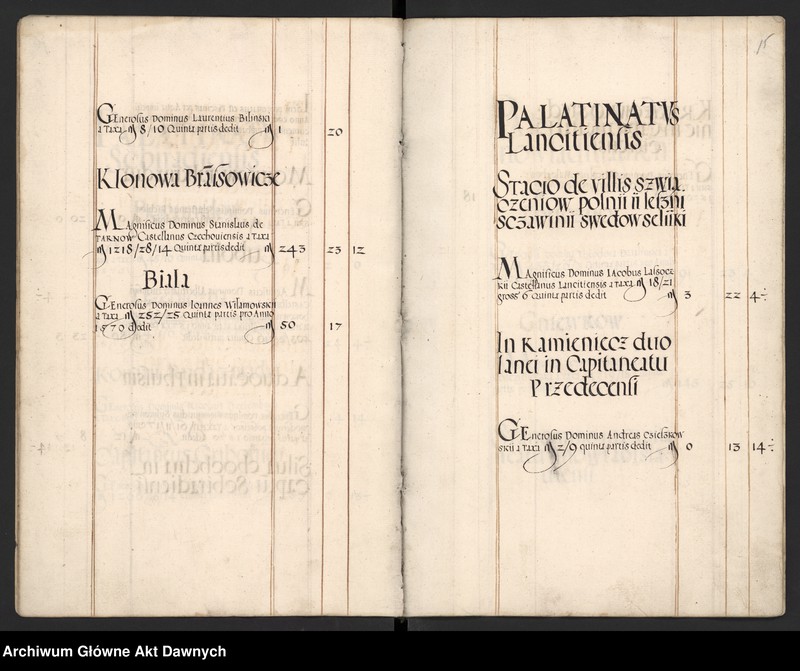 GEnerosus Dominus Laurentius Bilinski
a Taxa 8/10 Quinta partis dedit 1 20
Klonowa Braisowicze
MAgnificus Dominus Stanislaus de
TARNOW Castellanus Czechouiensis a Taxa
1218/28/14 Quinta partis dedit 243 23 12
Biała
GEnerosus Dominus Ioannes Wilamowskii
a Taxa 252/25 Quinta partis pro Anno
1570 dedit 50 17
15
PALATINATVS
Lancitiensis
Stacio de villis szwią
czeniow polnii ii leszni
sczawinii swedow seliiki
MAgnificus Dominus Iacobus Lassocz
kii Castellanus Lancitiensis a taxa 18/21
gross 6 Quinta partis dedit 3 22 4
In Kamieniecz duo
lanei in Capitaneatu
Przedecensi
GEnerosus Dominus Andreas Cziesskow
skii a Taxa 2/9 quinta partis dedit 0 13 14
Archiwum Główne Akt Dawnych